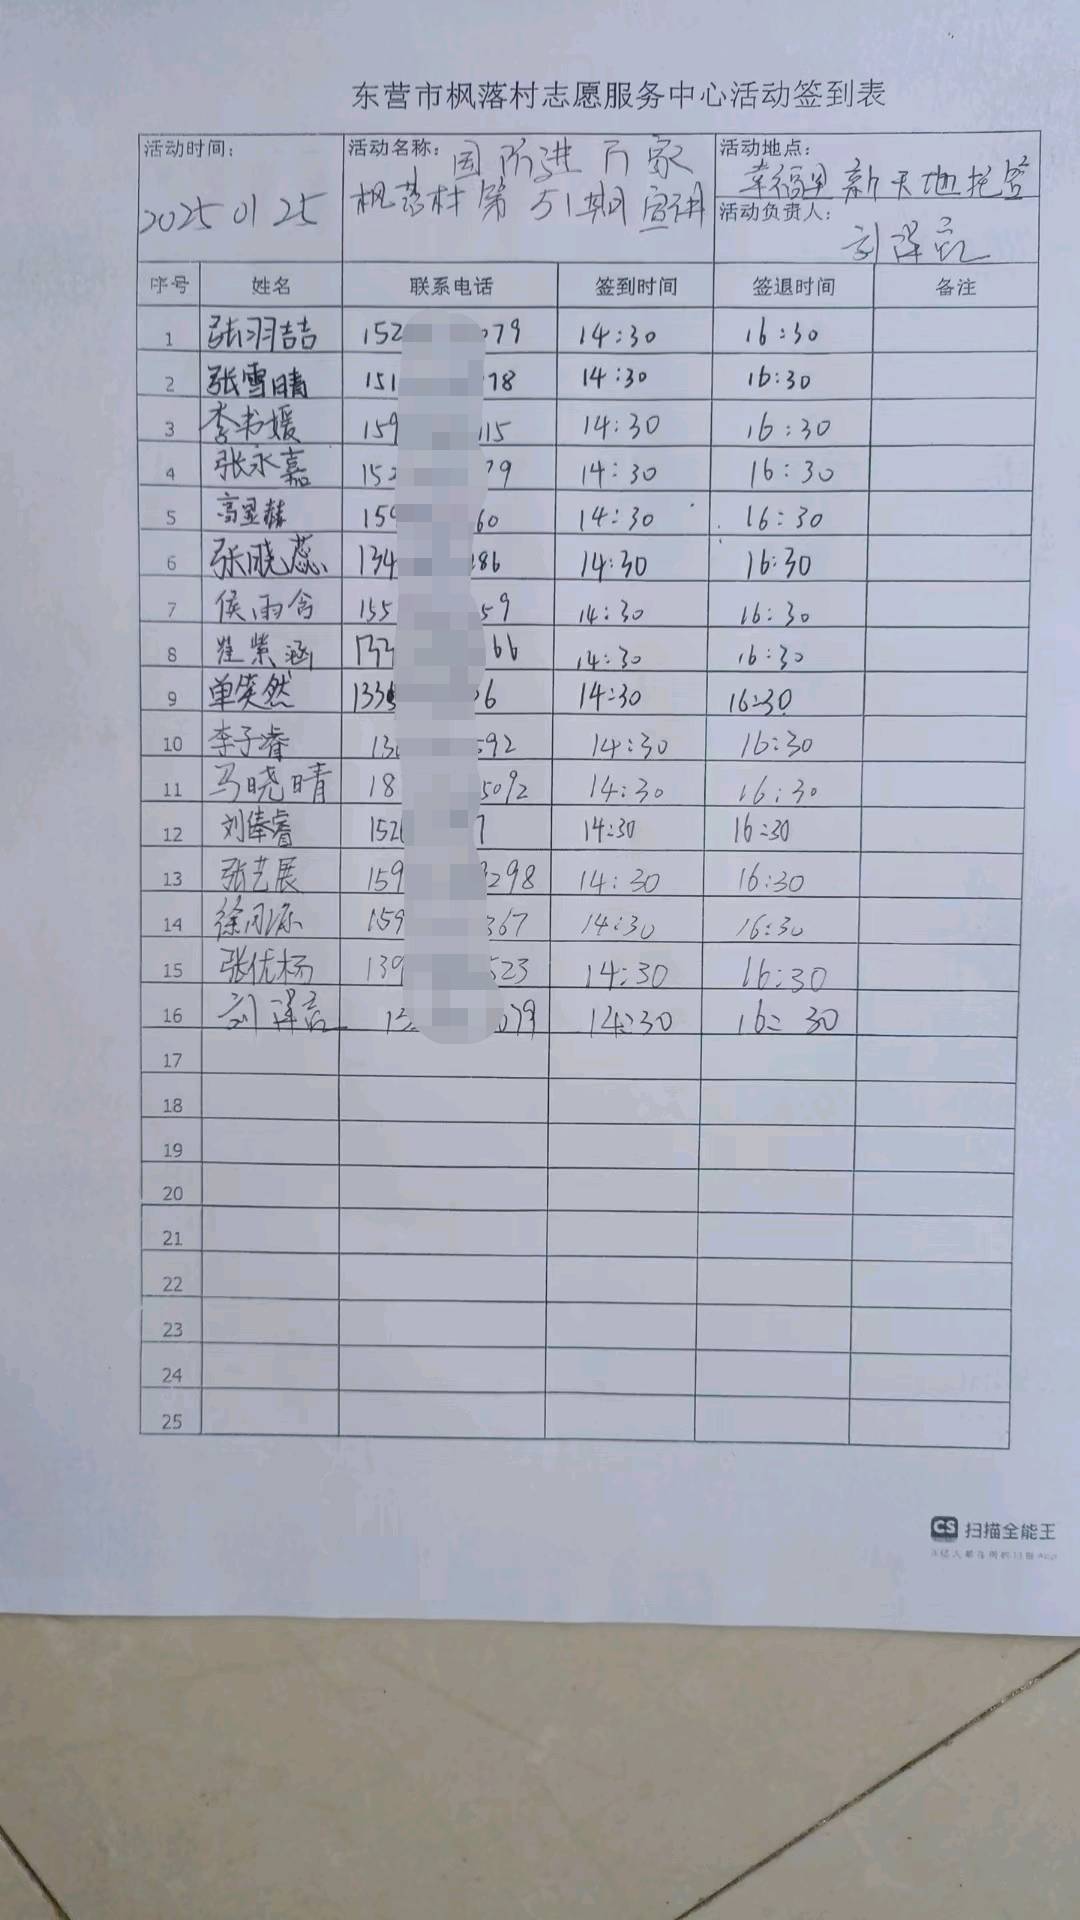 东营市枫落村志愿服务中心活动签到表
活动时间：
2025 01 25
活动名称：国防进万家
枫落村第51期宣讲
活动地点：
幸福里新天地
活动负责人：
序号 姓名 联系电话 签到时间 签退时间 备注
1 张羽喆 152 079 14:30 16:30
2 张雪晴 151 78 14:30 16:30
3 李书媛 159 115 14:30 16:30
4 张永嘉 152 79 14:30 16:30
5 159 60 14:30 16:30
6 张晓蕊 134 186 14:30 16:30
7 侯雨含 155 59 14:30 16:30
8 崔紫涵 133 66 14:30 16:30
9 单笑然 1336 6 14:30 16:30
10 李子睿 592 14:30 16:30
11 马晓晴 18 5092 14:30 16:30
12 刘俸睿 152 7 14:30 16:30
13 张艺展 159 3298 14:30 16:30
14 159 367 14:30 16:30
15 张优杨 139 523 14:30 16:30
16 079 14:30 16:30
17
18
19
20
21
22
23
24
25
CS 扫描全能王